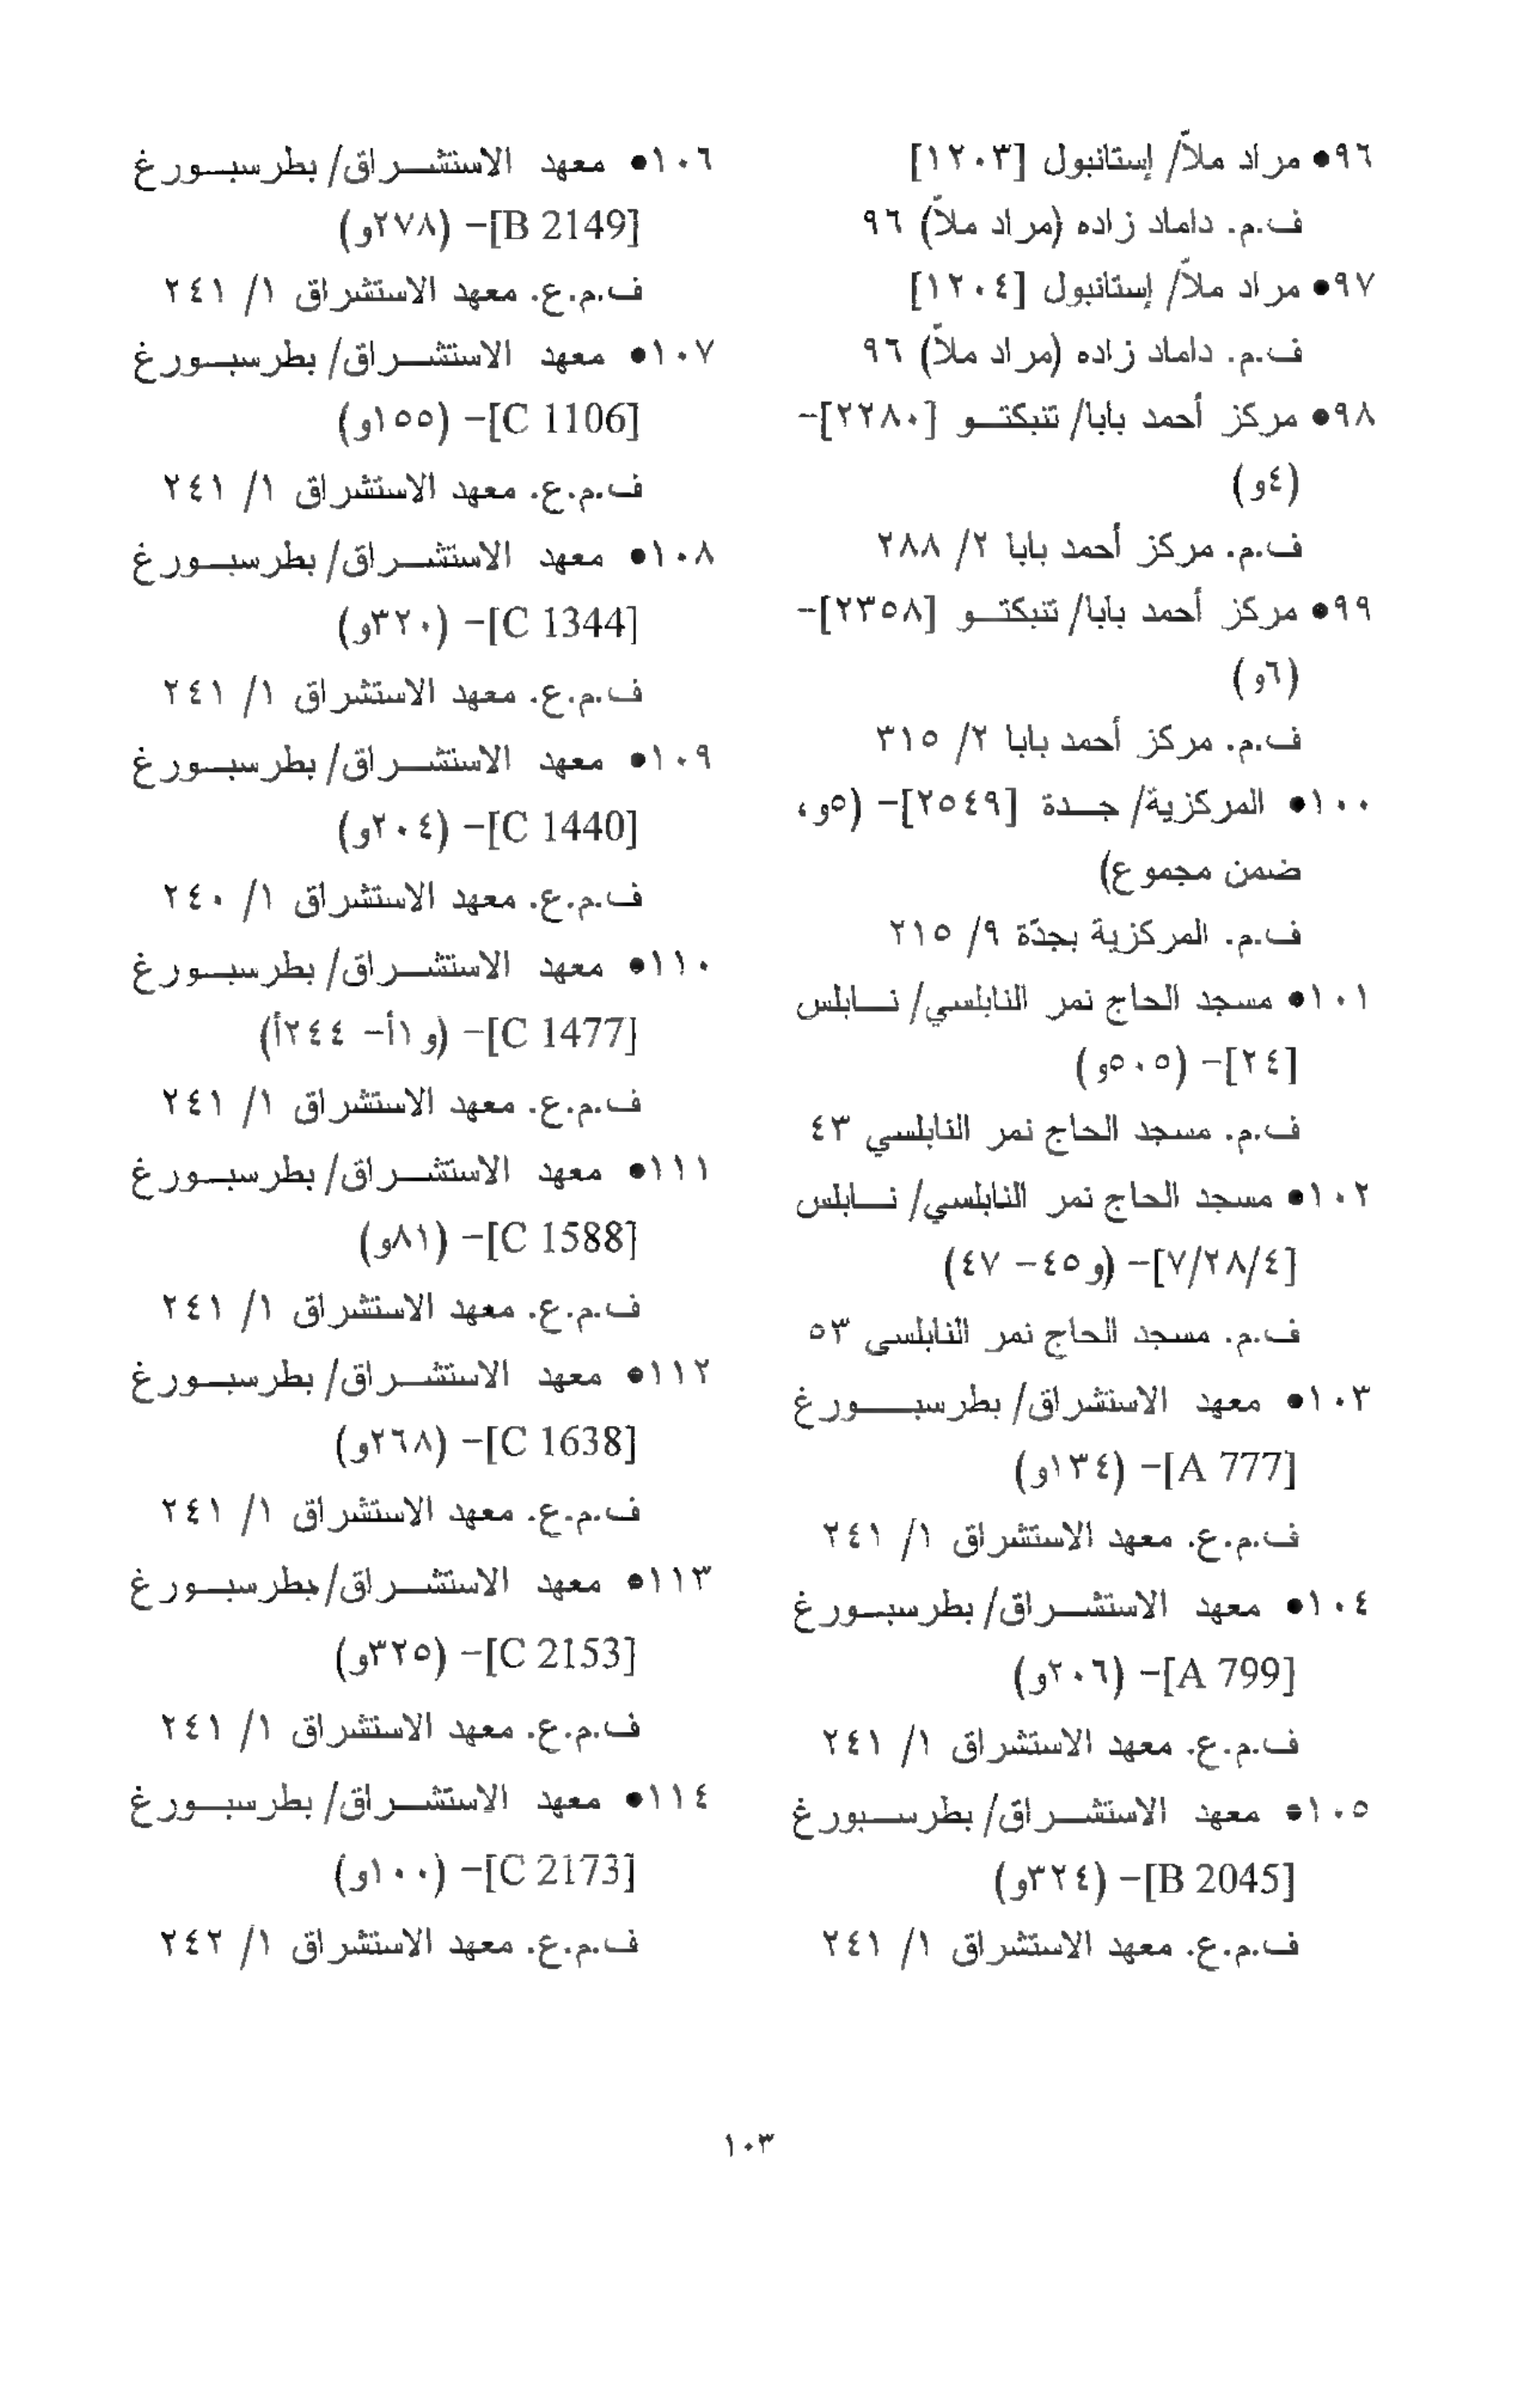 ٩٦● مراد ملاّ/ إستانبول [١٢٠٣]
ف.م. داماد زاده (مراد ملاّ) ٩٦
٩٧● مراد ملاّ/ إستانبول [١٢٠٤]
ف.م. داماد زاده (مراد ملاّ) ٩٦
٩٨● مركز أحمد بابا/ تنبكتو [٢٢٨٠]-
(٤و)
ف.م. مركز أحمد بابا ٢/ ٢٨٨
٩٩● مركز أحمد بابا/ تنبكتو [٢٣٥٨]-
(٦و)
ف.م. مركز أحمد بابا ٢/ ٣١٥
١٠٠● المركزية/ جدة [٢٥٤٩]- (٥و،
ضمن مجموع)
ف.م. المركزية بجدّة ٩/ ٢١٥
١٠١● مسجد الحاج نمر النابلسي/ نابلس
[٢٤]- (٥٠٥و)
ف.م. مسجد الحاج نمر النابلسي ٤٣
١٠٢● مسجد الحاج نمر النابلسي/ نابلس
[٧/٢٨/٤]- (و٤٥- ٤٧)
ف.م. مسجد الحاج نمر النابلسي ٥٣
١٠٣● معهد الاستشراق/ بطرسبورغ
[A 777]- (١٣٤و)
ف.م.ع. معهد الاستشراق ١/ ٢٤١
١٠٤● معهد الاستشراق/ بطرسبورغ
[A 799]- (٢٠٦و)
ف.م.ع. معهد الاستشراق ١/ ٢٤١
١٠٥● معهد الاستشراق/ بطرسبورغ
[B 2045]- (٣٢٤و)
ف.م.ع. معهد الاستشراق ١/ ٢٤١
١٠٦● معهد الاستشراق/ بطرسبورغ
[B 2149]- (٢٧٨و)
ف.م.ع. معهد الاستشراق ١/ ٢٤١
١٠٧● معهد الاستشراق/ بطرسبورغ
[C 1106]- (١٥٥و)
ف.م.ع. معهد الاستشراق ١/ ٢٤١
١٠٨● معهد الاستشراق/ بطرسبورغ
[C 1344]- (٣٢٠و)
ف.م.ع. معهد الاستشراق ١/ ٢٤١
١٠٩● معهد الاستشراق/ بطرسبورغ
[C 1440]- (٢٠٤و)
ف.م.ع. معهد الاستشراق ١/ ٢٤٠
١١٠● معهد الاستشراق/ بطرسبورغ
[C 1477]- (و١أ- ٢٤٤أ)
ف.م.ع. معهد الاستشراق ١/ ٢٤١
١١١● معهد الاستشراق/ بطرسبورغ
[C 1588]- (٨١و)
ف.م.ع. معهد الاستشراق ١/ ٢٤١
١١٢● معهد الاستشراق/ بطرسبورغ
[C 1638]- (٢٦٨و)
ف.م.ع. معهد الاستشراق ١/ ٢٤١
١١٣● معهد الاستشراق/ بطرسبورغ
[C 2153]- (٣٢٥و)
ف.م.ع. معهد الاستشراق ١/ ٢٤١
١١٤● معهد الاستشراق/ بطرسبورغ
[C 2173]- (١٠٠و)
ف.م.ع. معهد الاستشراق ١/ ٢٤٢
١٠٣